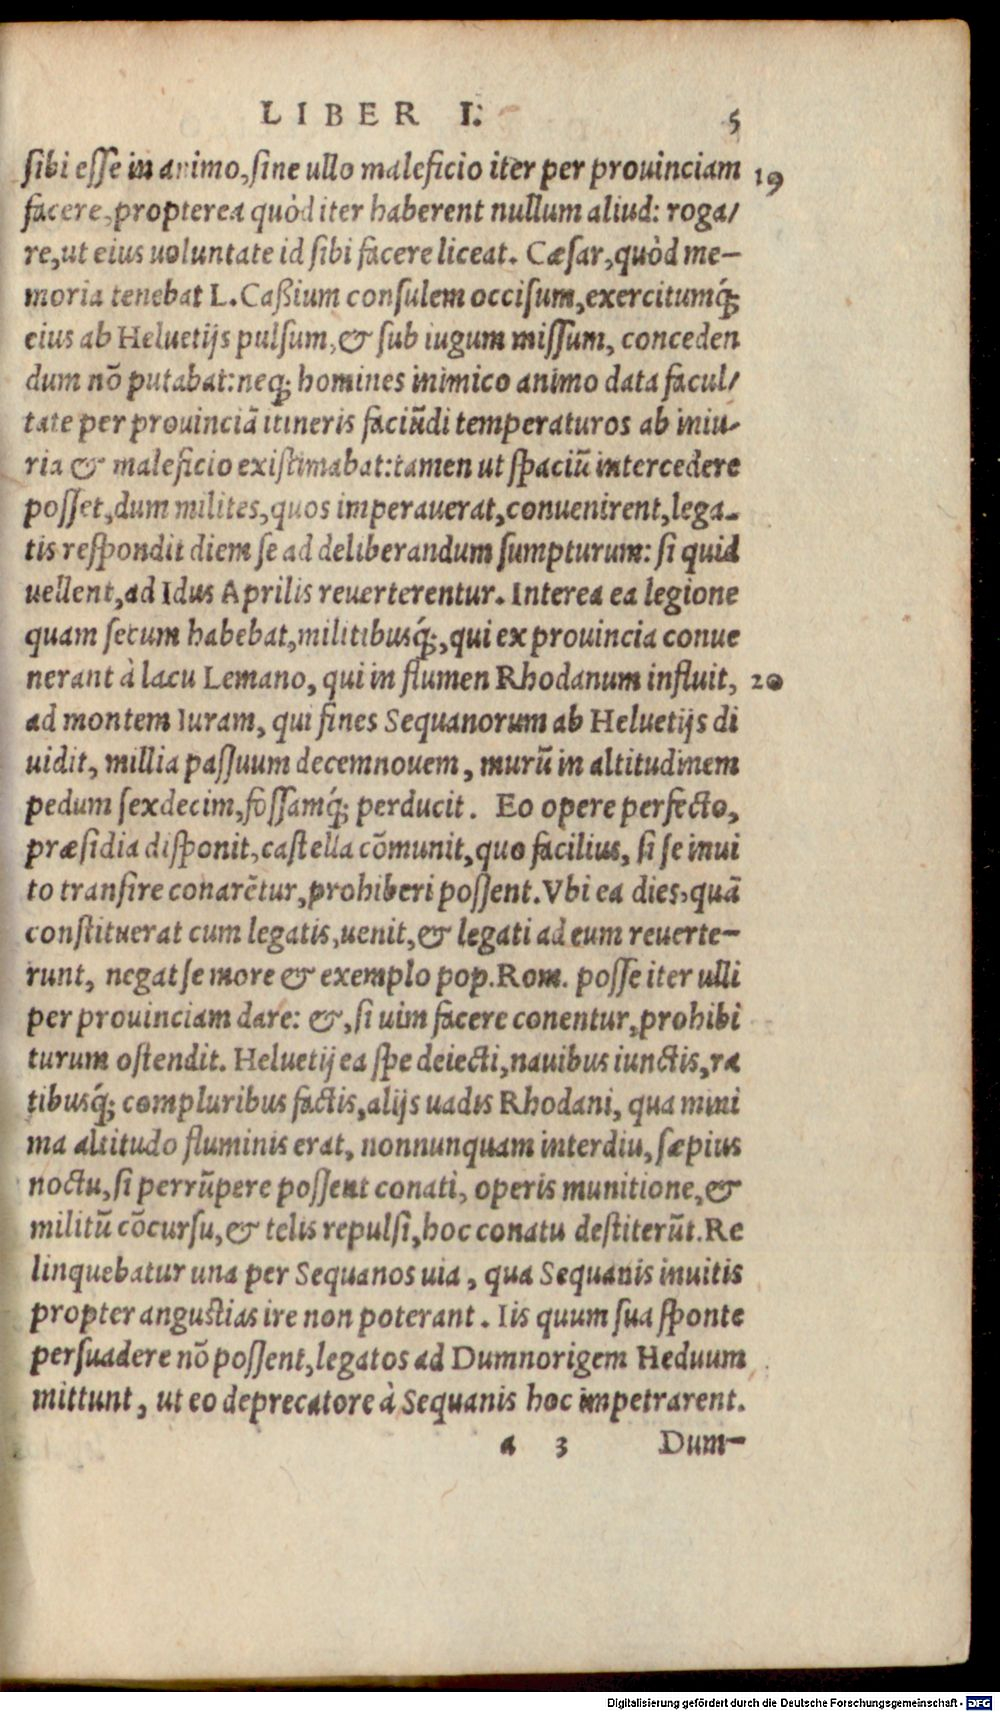 LIBER I. 5
sibi esse in animo, sine ullo maleficio iter per prouinciam 19
facere, propterea quòd iter haberent nullum aliud: roga/
re, ut eius uoluntate id sibi facere liceat. Cæsar, quòd me-
moria tenebat L. Caßium consulem occisum, exercitumq́;
eius ab Heluetijs pulsum, & sub iugum missum, conceden
dum nõ putabat: neq; homines inimico animo data facul/
tate per prouinciã itineris faciũdi temperaturos ab iniu-
ria & maleficio existimabat: tamen ut spaciũ intercedere
posset, dum milites, quos imperauerat, conuenirent, lega-
tis respondit diem se ad deliberandum sumpturum: si quid
uellent, ad Idus Aprilis reuerterentur. Interea ea legione
quam secum habebat, militibusq́;, qui ex prouincia conue
nerant à lacu Lemano, qui in flumen Rhodanum influit, 20
ad montem Iuram, qui fines Sequanorum ab Heluetijs di
uidit, millia passuum decemnouem, murũ in altitudinem
pedum sexdecim, fossamq́; perducit. Eo opere perfecto,
præsidia disponit, castella cõmunit, quo facilius, si se inui
to transire conarẽtur, prohiberi possent. Vbi ea dies, quã
constituerat cum legatis, uenit, & legati ad eum reuerte-
runt, negat se more & exemplo pop. Rom. posse iter ulli
per prouinciam dare: &, si uim facere conentur, prohibi
turum ostendit. Heluetij ea spe deiecti, nauibus iunctis, ra
tibusq́; compluribus factis, alijs uadis Rhodani, qua mini
ma altitudo fluminis erat, nonnunquam interdiu, sæpius
noctu, si perrũpere possent conati, operis munitione, &
militũ cõcursu, & telis repulsi, hoc conatu destiterũt. Re
linquebatur una per Sequanos uia, qua Sequanis inuitis
propter angustias ire non poterant. Iis quum sua sponte
persuadere nõ possent, legatos ad Dumnorigem Heduum
mittunt, ut eo deprecatore à Sequanis hoc impetrarent.
a 3 Dum-
Digitalisierung gefördert durch die Deutsche Forschungsgemeinschaft - DFG